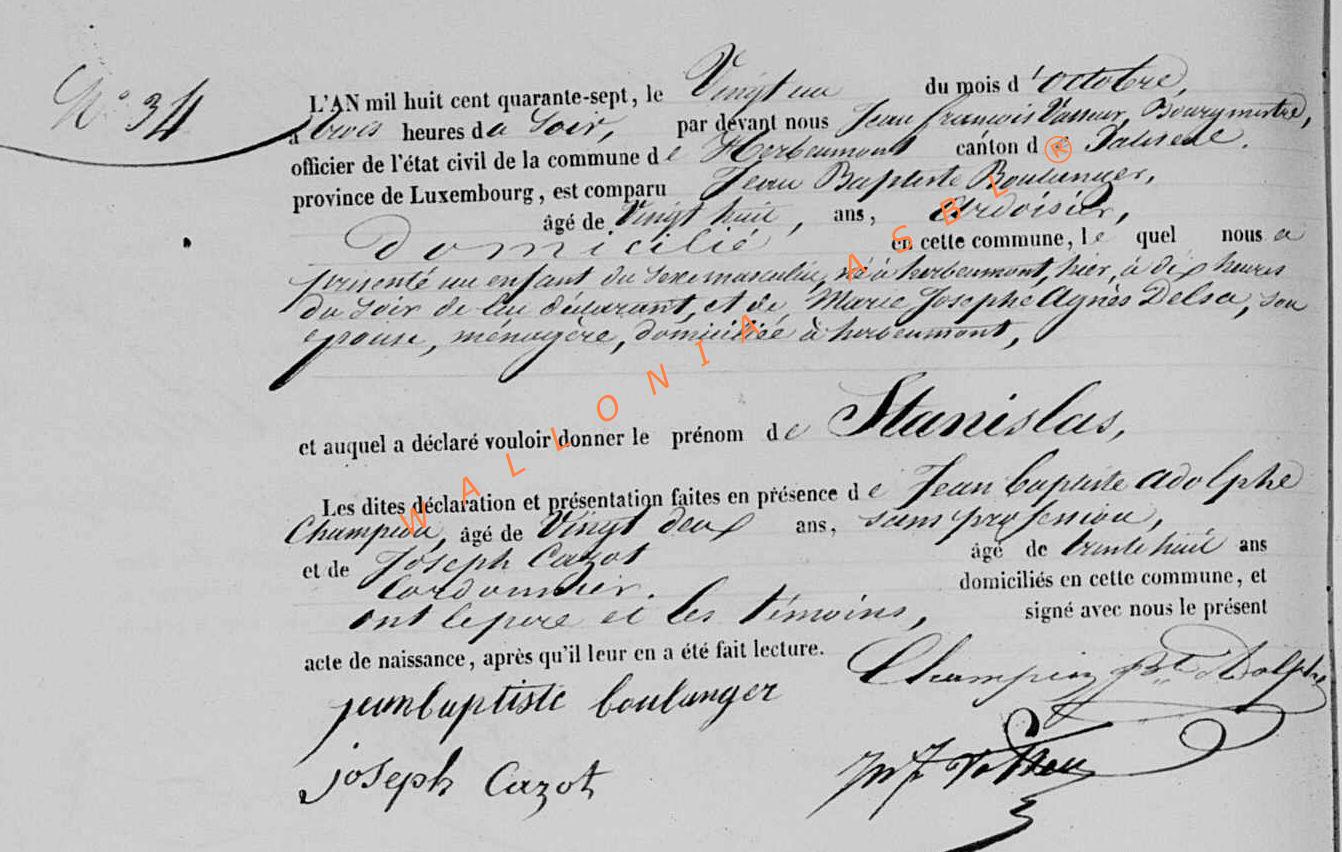 N° 34
L'AN mil huit cent quarante-sept, le Vingt un du mois d'octobre,
à trois heures du Soir, par devant nous Jean francois Vasseur, Bourgmestre,
officier de l'état civil de la commune de Herbeumont canton de Paliseul.
province de Luxembourg, est comparu Jean Baptiste Boulanger,
âgé de Vingt huit, ans, ardoisier,
Domicilié en cette commune, le quel nous a
présenté un enfant du sexe masculin, né à herbeumont, hier, à dix heures
du soir de lui déclarant, et de Marie Josephe Agnès Delsa, son
épouse, ménagère, domiciliée à herbeumont,
et auquel a déclaré vouloir donner le prénom de Stanislas,
Les dites déclaration et présentation faites en présence de Jean baptiste adolphe
Champion, âgé de Vingt deux ans, sans profession,
et de Joseph Cazot âgé de trente huit ans
Cordonnier. domiciliés en cette commune, et
ont le père et les témoins, signé avec nous le présent
acte de naissance, après qu'il leur en a été fait lecture.
Champion Bte Adolphe
jeanbaptiste boulanger
joseph Cazot
WALLONIA ASBL ®